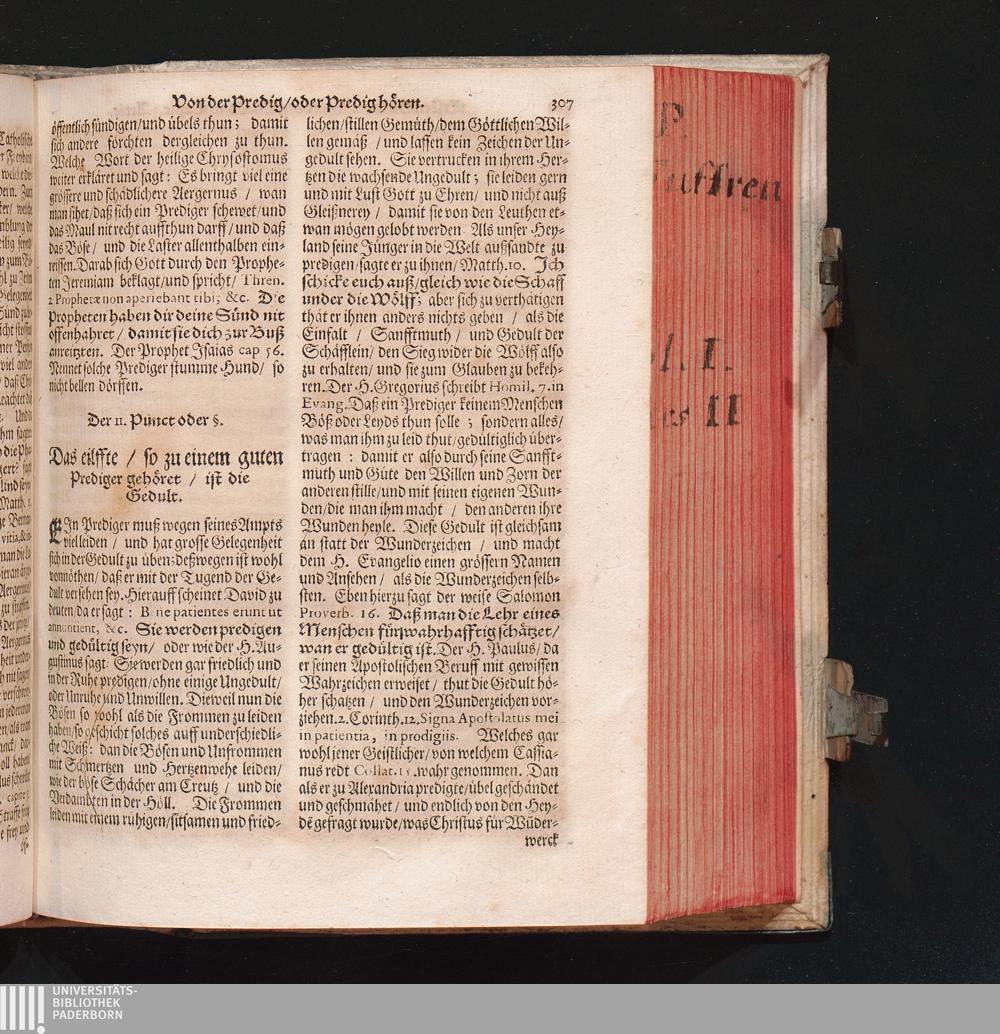 Von der Predig/oder Predig hören.
307
öffentlich sündigen/und übels thun; damit
sich andere förchten dergleichen zu thun.
Welche Wort der heilige Chrysostomus
weiter erkläret und sagt: Es bringt viel eine
grössere und schädlichere Aergernus / wan
man sihet/daß sich ein Prediger schewet/und
das Maul nit recht auffthun darff/und daß
das Böse/ und die Laster allenthalben ein-
reissen. Darab sich Gott durch den Prophe-
ten Jeremiam beklagt/und spricht/ Thren.
2 Prophetæ non aperiebant tibi; &c. Die
Propheten haben dir deine Sünd nit
offenhahret/ damit sie dich zur Buß
anreitzten. Der Prophet Isaias cap 56.
Nennet solche Prediger stumme Hund/ so
nicht bellen dörffen.
Der II. Punct oder §.
Das eilffte / so zu einem guten
Prediger gehöret / ist die
Gedult.
EIn Prediger muß wegen seines Ampts
viel leiden / und hat grosse Gelegenheit
sich in der Gedult zu üben: deßwegen ist wohl
vonnöthen/ daß er mit der Tugend der Ge-
dult versehen sey. Hierauff scheinet David zu
deuten/da er sagt: B ne patientes erunt ut
annuntient, &c. Sie werden predigen
und gedültig seyn/ oder wie der H. Au-
gustinus sagt: Sie werden gar friedlich und
in der Ruhe predigen/ohne einige Ungedult/
oder Unruhe und Unwillen. Dieweil nun die
Bösen so wohl als die Frommen zu leiden
haben/so geschicht solches auff underschiedli-
che Weiß: dan die Bösen und Unfrommen
mit Schmertzen und Hertzenwehe leiden/
wie der böse Schächer am Creutz / und die
Verdambten in der Höll. Die Frommen
leiden mit einem rühigen/sitsamen und fried-
lichen/stillen Gemüth/dem Göttlichen Wil-
len gemäß /und lassen kein Zeichen der Un-
gedult sehen. Sie vertrucken in ihrem Her-
tzen die wachsende Ungedult; sie leiden gern
und mit Lust Gott zu Ehren/ und nicht auß
Gleißnerey / damit sie von den Leuthen et-
wan mögen gelobt werden. Als unser Hey-
land seine Jünger in die Welt außsandte zu
predigen/sagte er zu ihnen/Matth.10. Ich
schicke euch auß/gleich wie die Schaff
under die Wölff; aber sich zu verthätigen
that er ihnen anders nichts geben / als die
Einfalt / Sanfftmuth / und Gedult der
Schäfflein/ den Sieg wider die Wölff also
zu erhalten/ und sie zum Glauben zu bekeh-
ren. Der H. Gregorius schreibt Homil. 7. in
Evang. Daß ein Prediger keinem Menschen
Böß oder Leyds thun solle ; sondern alles/
was man ihm zu leid thut/gedültiglich über-
tragen : damit er also durch seine Sanfft-
muth und Güte den Willen und Zorn der
anderen stille/und mit seinen eigenen Wun-
den/die man ihm macht / den anderen ihre
Wunden heyle. Diese Gedult ist gleichsam
an statt der Wunderzeichen / und macht
dem H. Evangelio einen grössern Namen
und Ansehen/ als die Wunderzeichen selb-
sten. Eben hierzu sagt der weise Salomon
Proverb. 16. Daß man die Lehr eines
Menschen für wahrhafftig schätzet/
wan er gedültig ist. Der H. Paulus/da
er seinen Apostolischen Beruff mit gewissen
Wahrzeichen erweiset/ thut die Gedult hö-
her schatzen/ und den Wunderzeichen vor-
ziehen. 2. Corinth. 12. Signa Apostolatus mei
in patientia, in prodigiis. Welches gar
wohl jener Geistlicher/von welchem Cassia-
nus redt Collat. wahr genommen. Dan
als er zu Alexandria predigte/übel geschändet
und geschmähet/ und endlich von den Hey-
dē gefragt wurde/was Christus für Wüder-
werck
P.
Suffren
l. I.
es II
UNIVERSITÄTS-
BIBLIOTHEK
PADERBORN